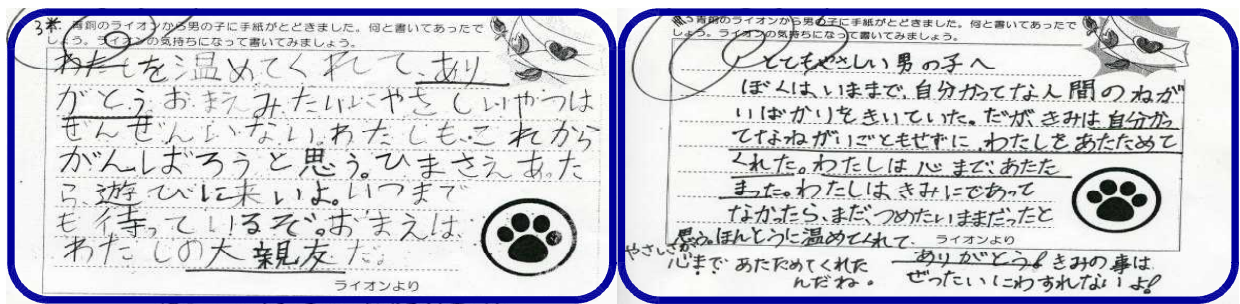 3年
青銅のライオンから男の子に手紙がとどきました。何と書いてあったで
しょう。ライオンの気持ちになって書いてみましょう。
わたしを温めてくれて、あり
がとう。おまえみたいにやさしいやつは
ぜんぜんいない。わたしも、これから
がんばろうと思う。ひまさえあった
ら、遊びに来いよ。いつまで
も待っているぞ。おまえは
わたしの大親友だ。
ライオンより
青銅のライオンから男の子に手紙がとどきました。何と書いてあったで
しょう。ライオンの気持ちになって書いてみましょう。
とてもやさしい男の子へ
ぼくは、いままで、自分かってな人間のねが
いばかりをきいていた。だが、きみは自分かっ
てなねがいごともせずに、わたしをあたためて
くれた。わたしは心まで、あたた
まった。わたしは、きみにであって
なかったら、まだ、つめたいままだったと
思う。ほんとうに温めてくれて、
ライオンより
ありがとう!きみの事は
ぜったいにわすれないよ!
やさしさが、
心まであたためてくれた
んだね。